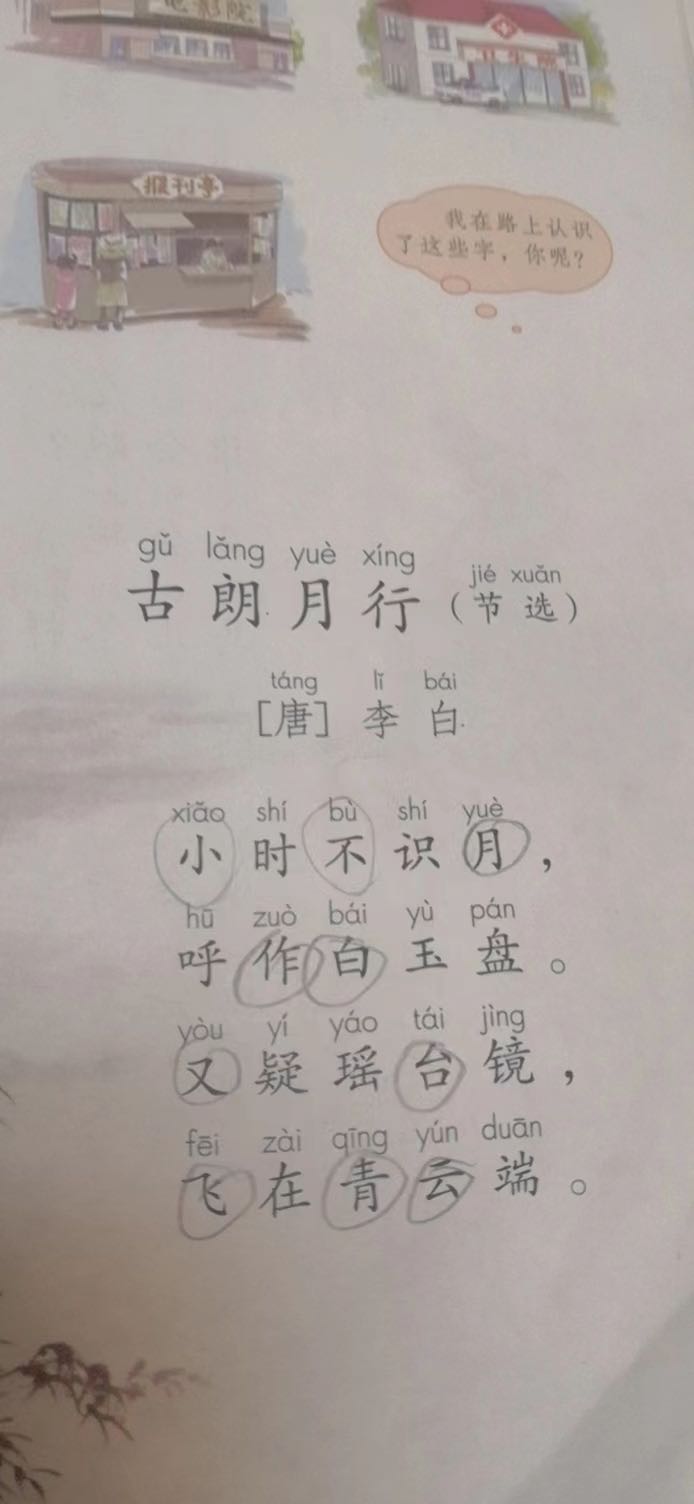 电影院
卫生院
报刊亭
我在路上认识
了这些字，你呢？
gǔ lǎng yuè xíng jié xuǎn
古朗月行（节选）
táng lǐ bái
［唐］李白
xiǎo shí bù shí yuè
小时不识月，
hū zuò bái yù pán
呼作白玉盘。
yòu yí yáo tái jìng
又疑瑶台镜，
fēi zài qīng yún duān
飞在青云端。